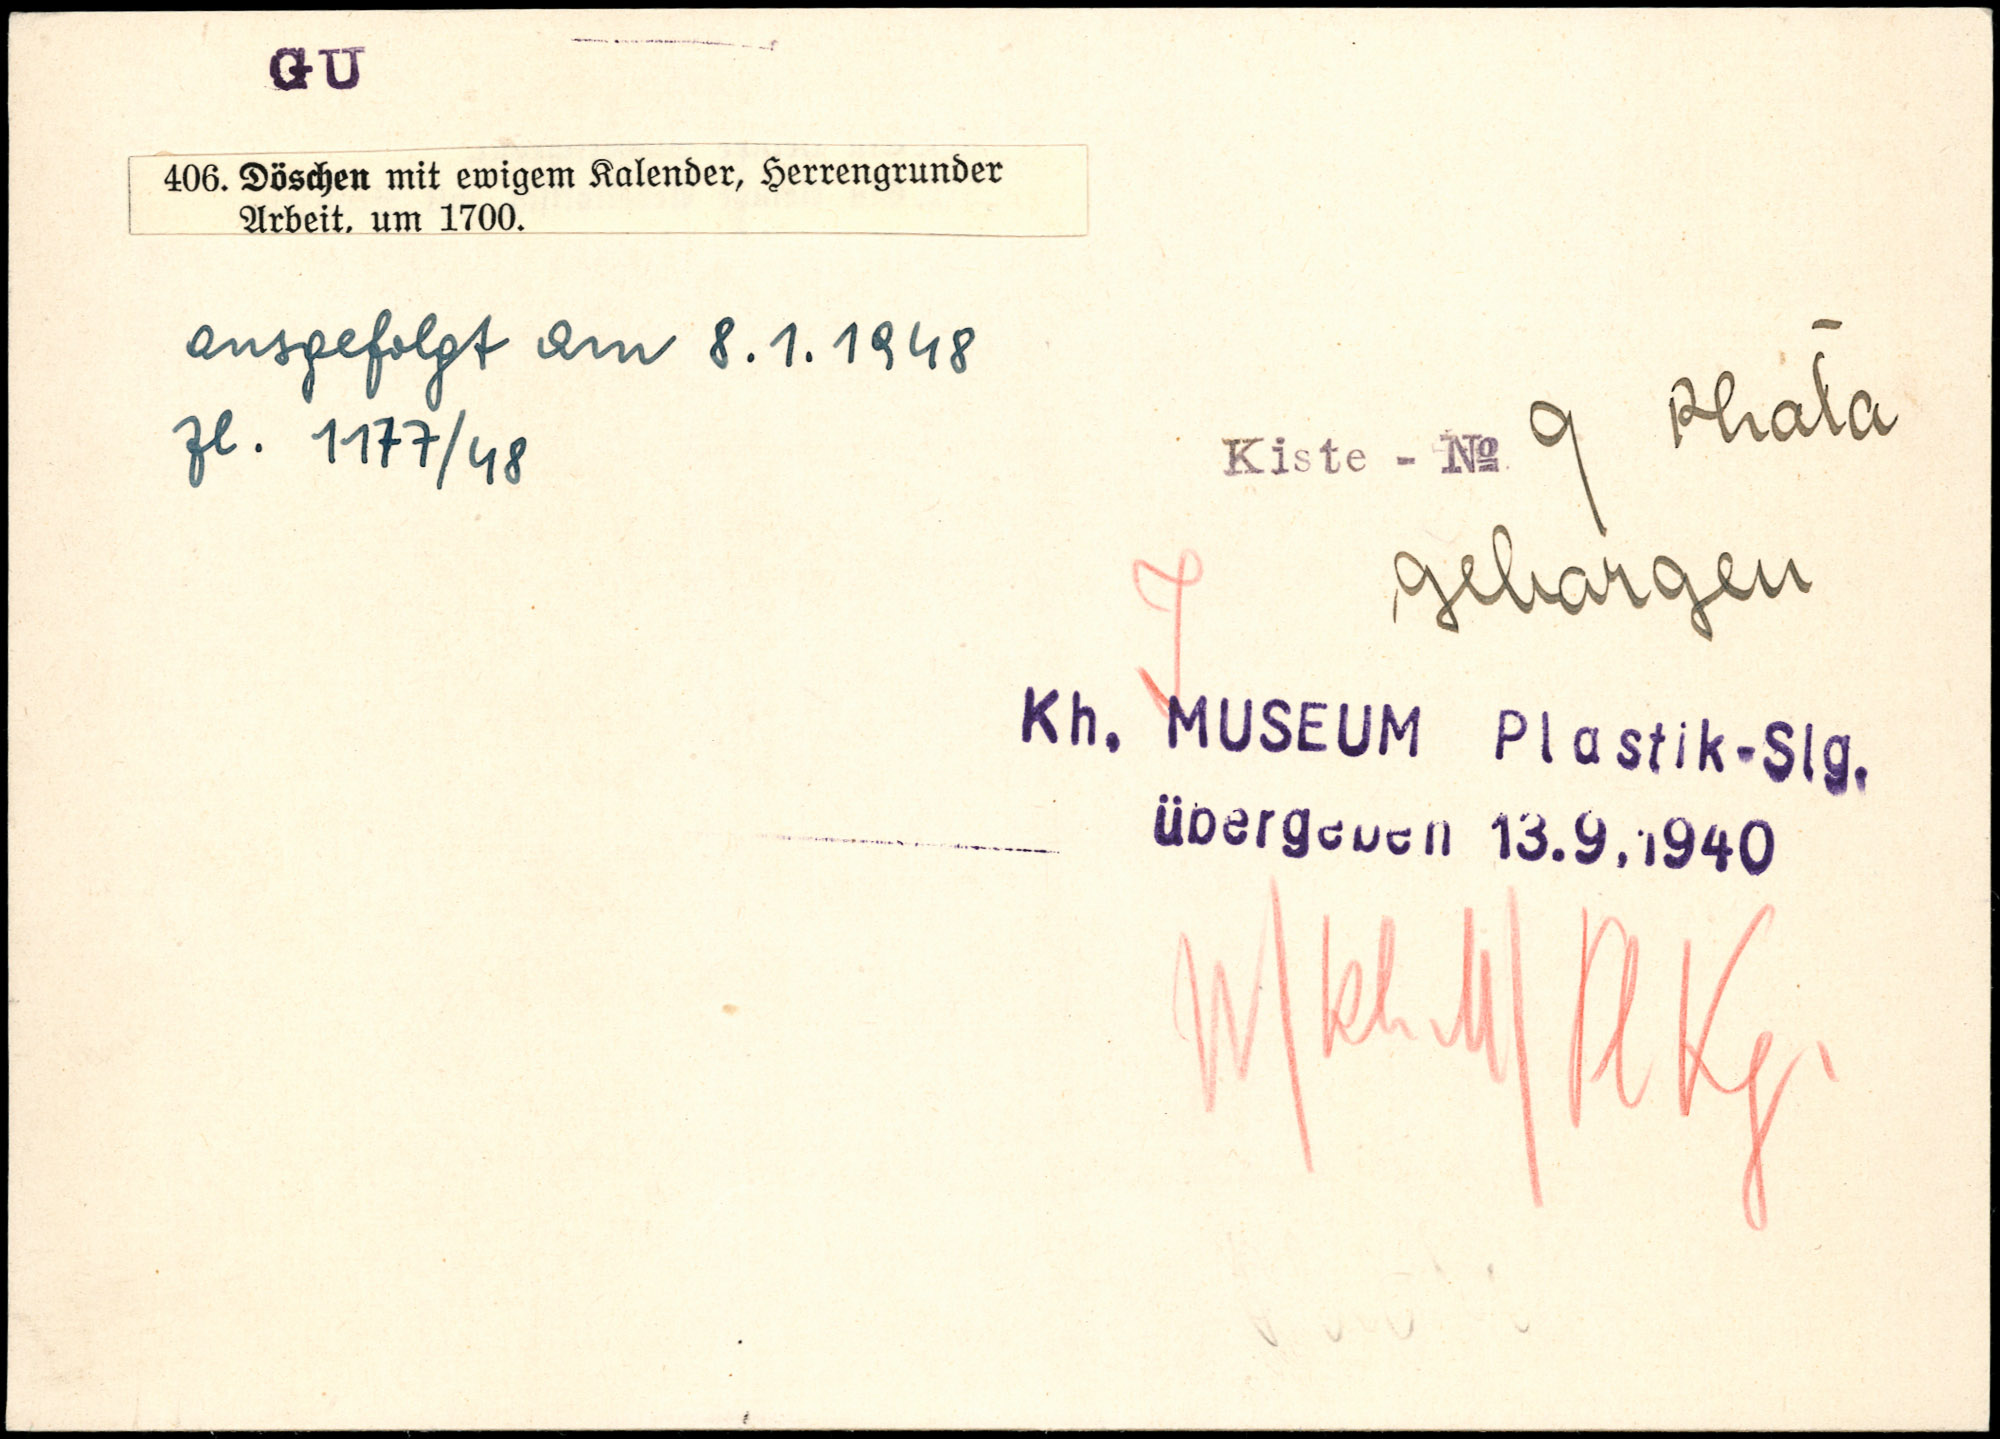 GU
406. Döschen mit ewigem Kalender, Herrengrunder
Arbeit, um 1700.
ausgefolgt am 8.1.1948
Zl. 1177/48
Kiste - № 9 Khata
geborgen
I
Kh. MUSEUM Plastik-Slg.
übergeben 13.9.1940
W/KhM/Pl Kg.